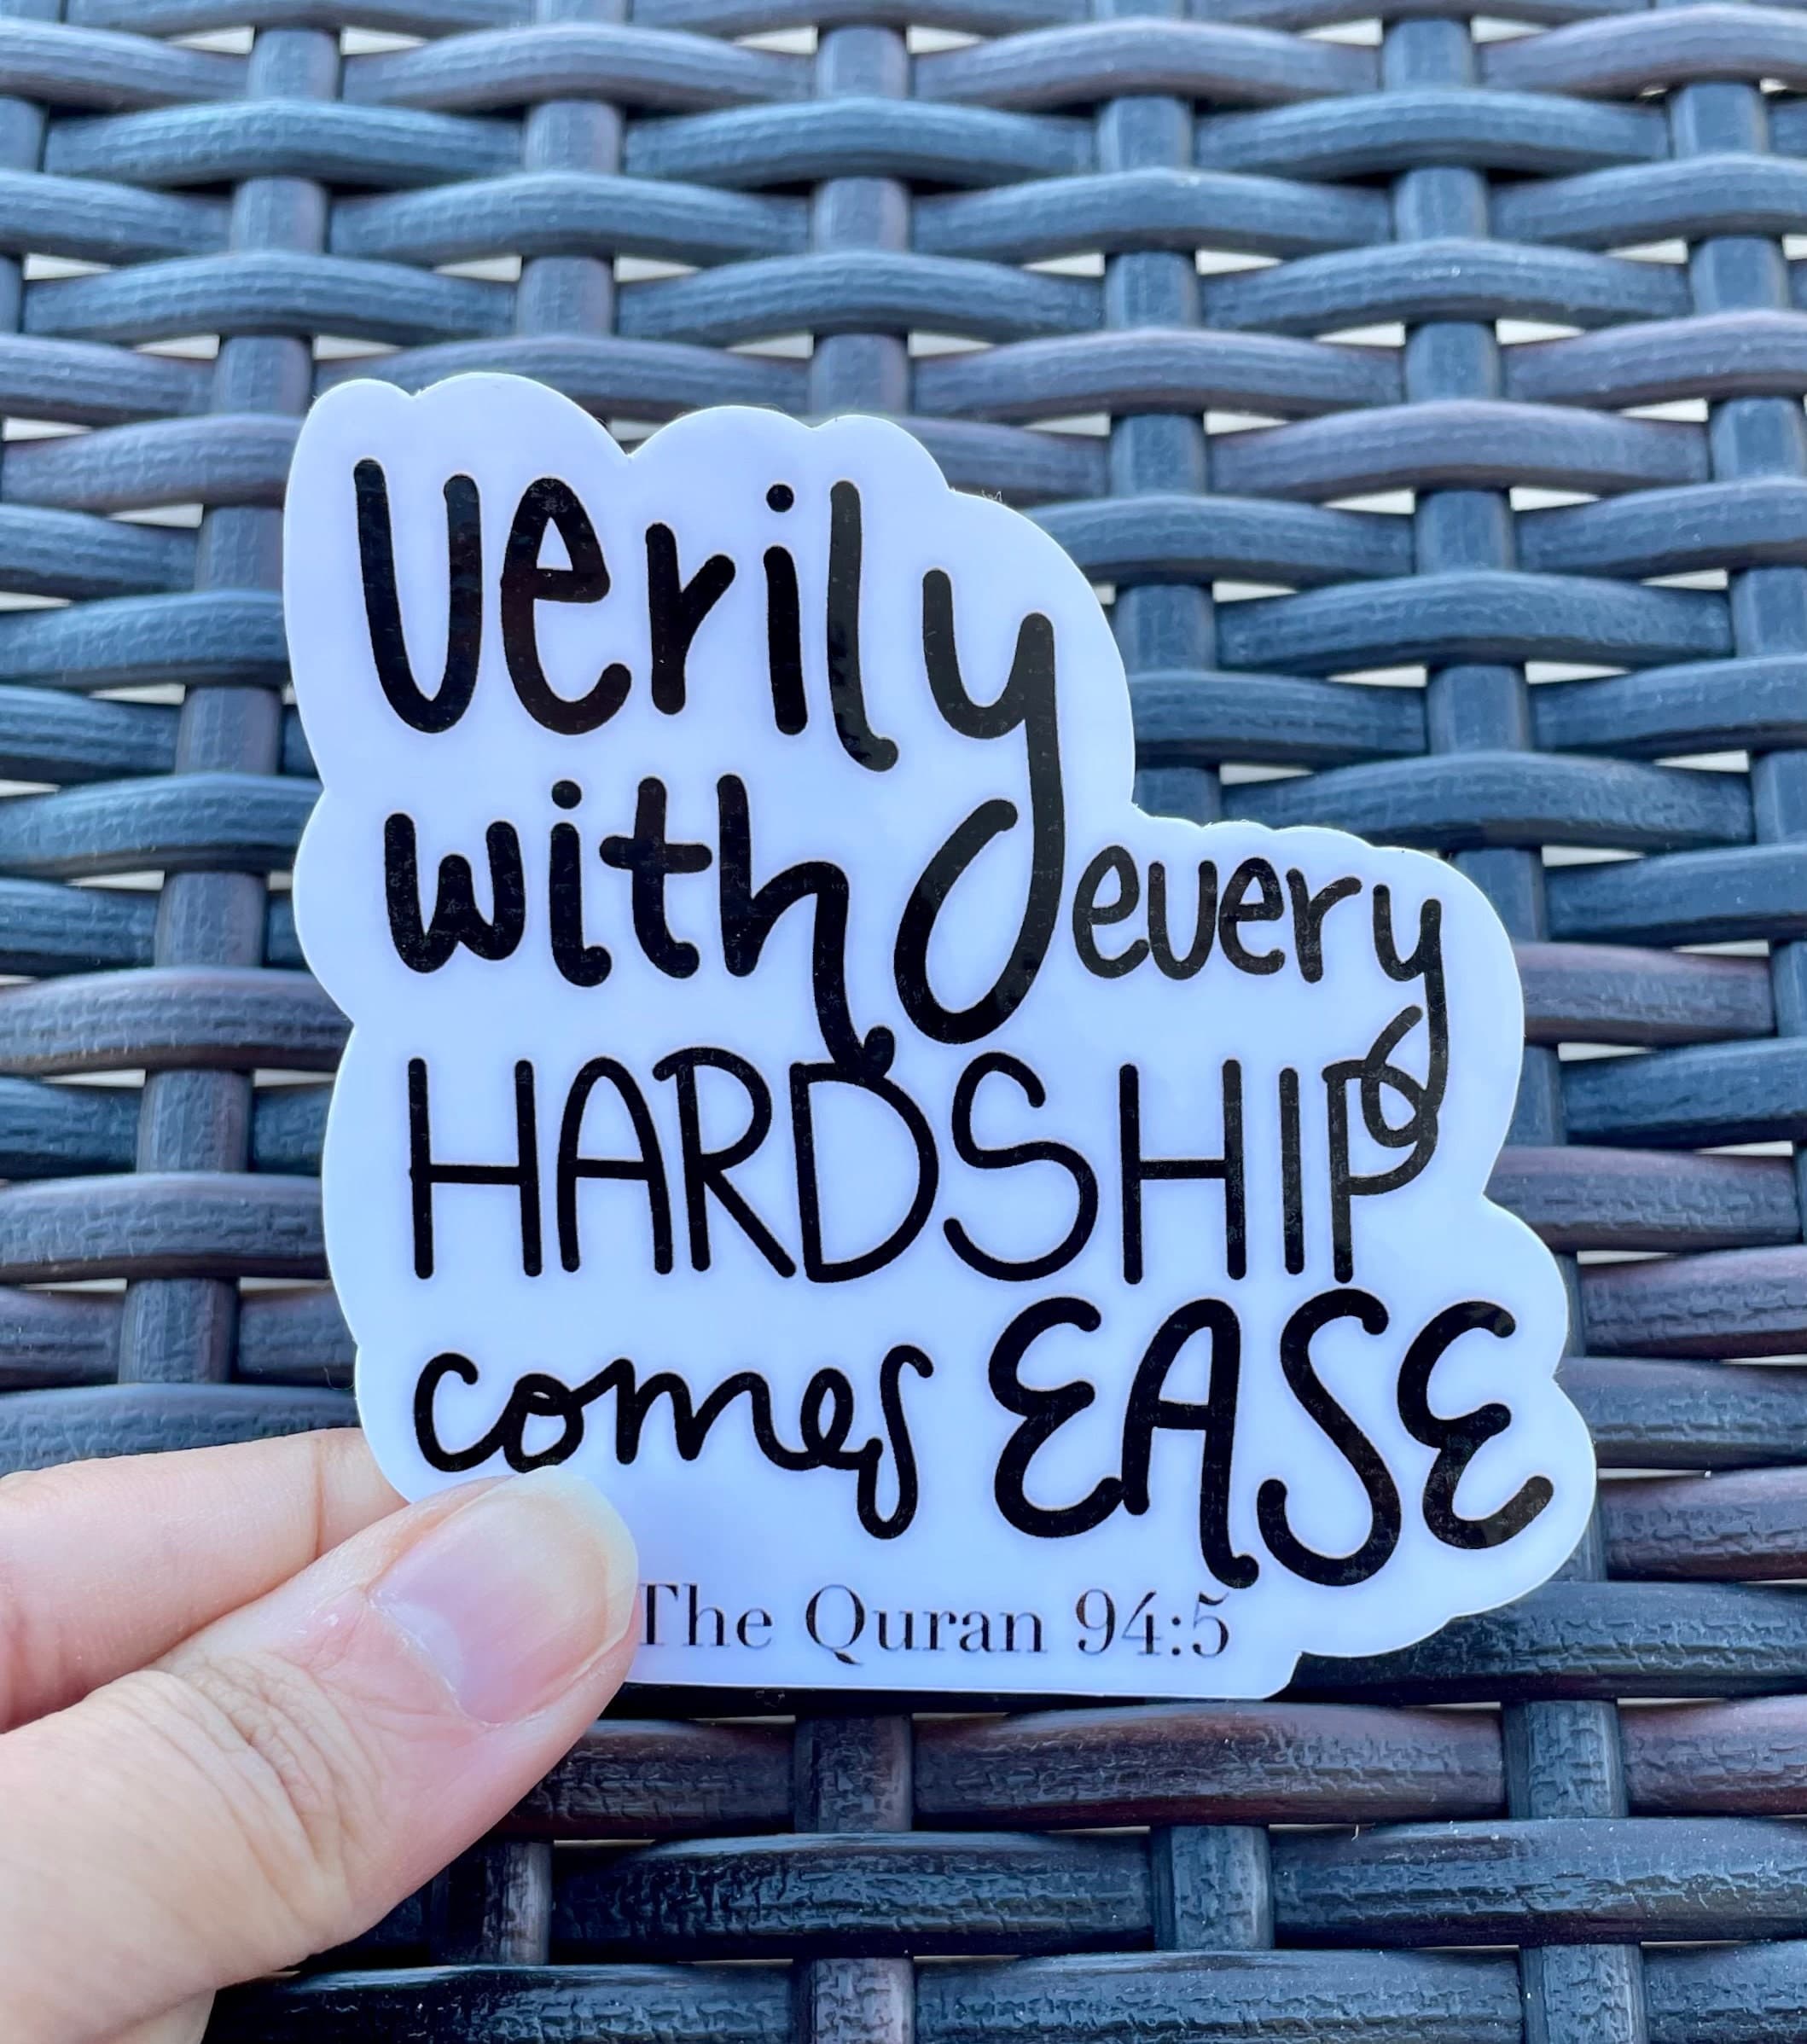 Verily
with every
HARDSHIP
comes EASE
The Quran 94:5